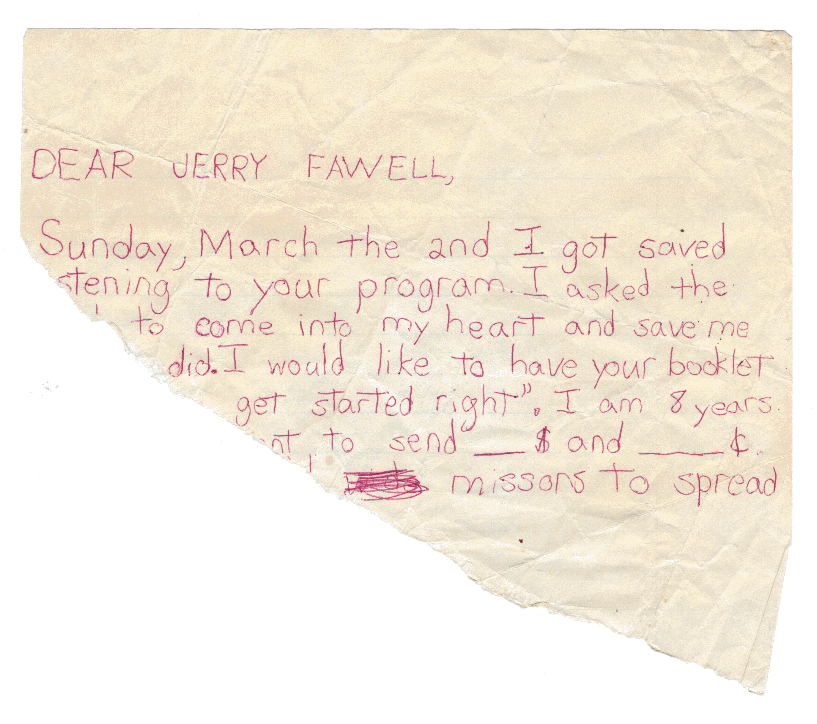 DEAR JERRY FAWELL,
Sunday, March the 2nd I got saved
stening to your program. I asked the
to come into my heart and save me
did. I would like to have your booklet
get started right". I am 8 years
nt to send ___$ and ____¢.
missons to spread